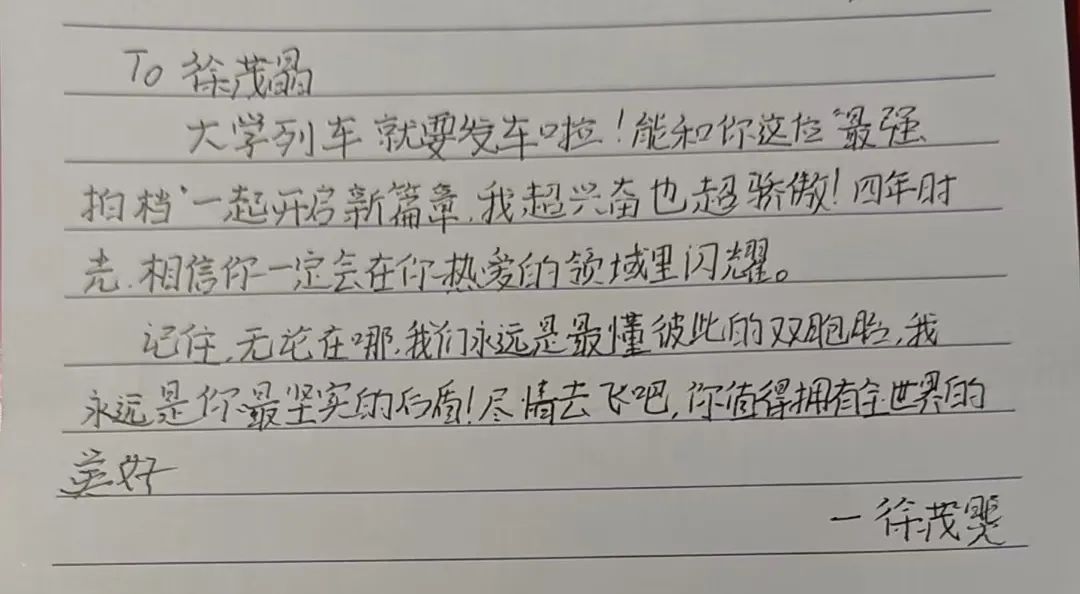 To 徐茂晶
大学列车就要发车啦！能和你这位“最强
拍档”一起开启新篇章，我超兴奋也超骄傲！四年时
光，相信你一定会在你热爱的领域里闪耀。
记住，无论在哪，我们永远是最懂彼此的双胞胎，我
永远是你最坚实的后盾！尽情去飞吧，你值得拥有全世界的
美好
一徐茂